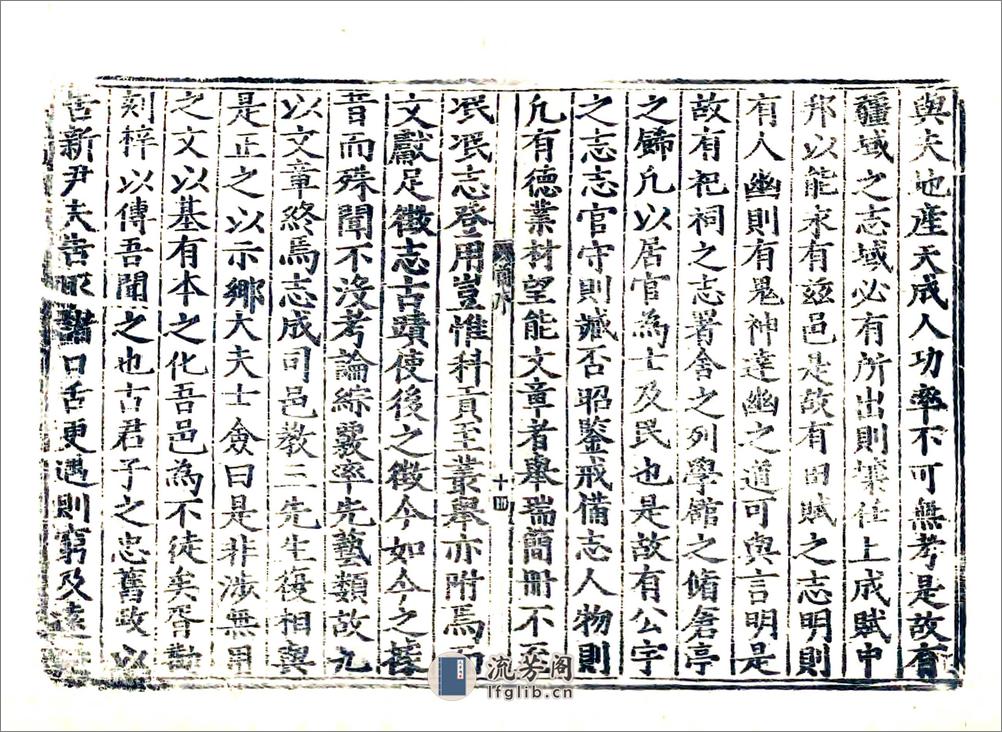 與夫地產天成人功率不可無考是故有
疆域之志域必有所出則壤任土成賦中
邦以能永有茲邑是故有田賦之志明則
有人幽則有鬼神達幽之道可與言明是
故有祀祠之志署舍之列學館之脩倉亭
之歸凡以居官為士及民也是故有公宇
之志志官守則臧否昭鑒戒備志人物則
凡有德業材望能文章者舉瑞簡冊不至
泯泯志登用豈惟科貢至叢舉亦附焉而
文獻足徵志古蹟使後之徵今如今之
昔而殊聞不沒考論綜覈率先藝類故凡
以文章終焉志成司邑教三先生復相與
是正之以示鄉大夫士僉曰是非涉無用
之文以基有本之化吾邑為不徒矣胥勸
刻梓以傳吾聞之也古君子之忠舊政以
告新尹夫告 口舌更遇則窮及遠
十四
流芳阁
lfglib.cn